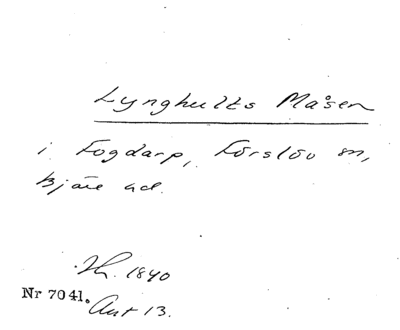 Lynghults Måsen
i Fogdarp, Förslöv sn,
Bjäre hd.
Th. 1840
Nr 7041.
Aut 13.